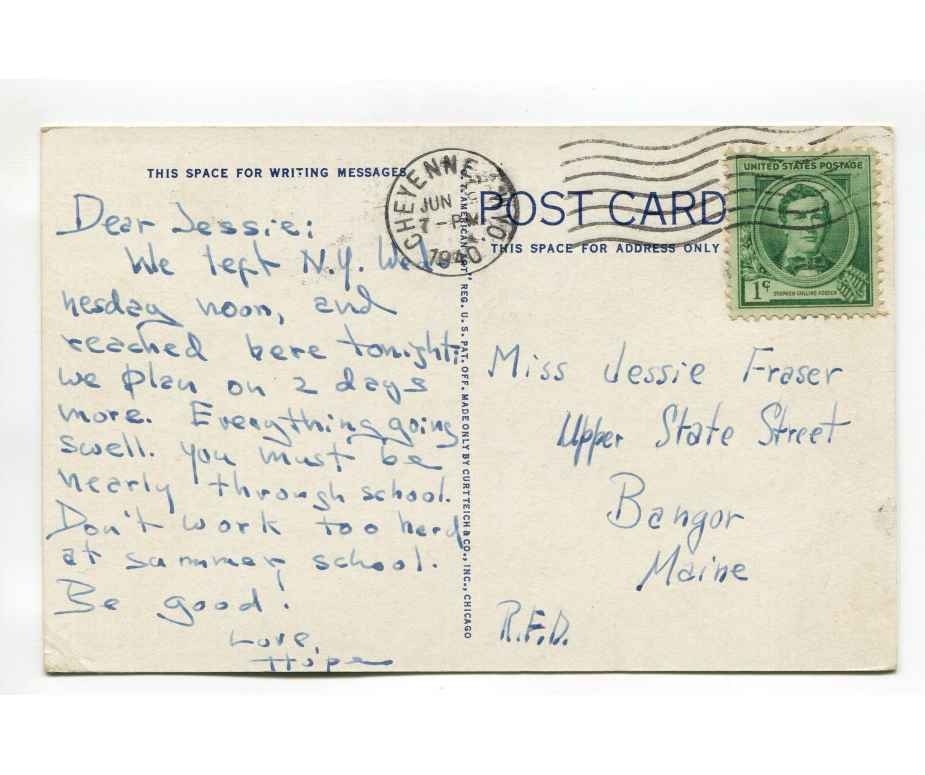 THIS SPACE FOR WRITING MESSAGES
Dear Jessie:
We left N.Y. Wed-
nesday noon, and
reached here tonight:
we plan on 2 days
more. Everything going
swell. You must be
nearly through school.
Don't work too hard
at summer school.
Be good!
Love,
Hope
CHEYENNE, WYO.
JUN
7-PM
1940
REG. U. S. PAT. OFF. MADE ONLY BY CURT TEICH & CO., INC., CHICAGO
POST CARD
THIS SPACE FOR ADDRESS ONLY
UNITED STATES POSTAGE
1¢
STEPHEN COLLINS FOSTER
Miss Jessie Fraser
Upper State Street
Bangor
Maine
R.F.D.